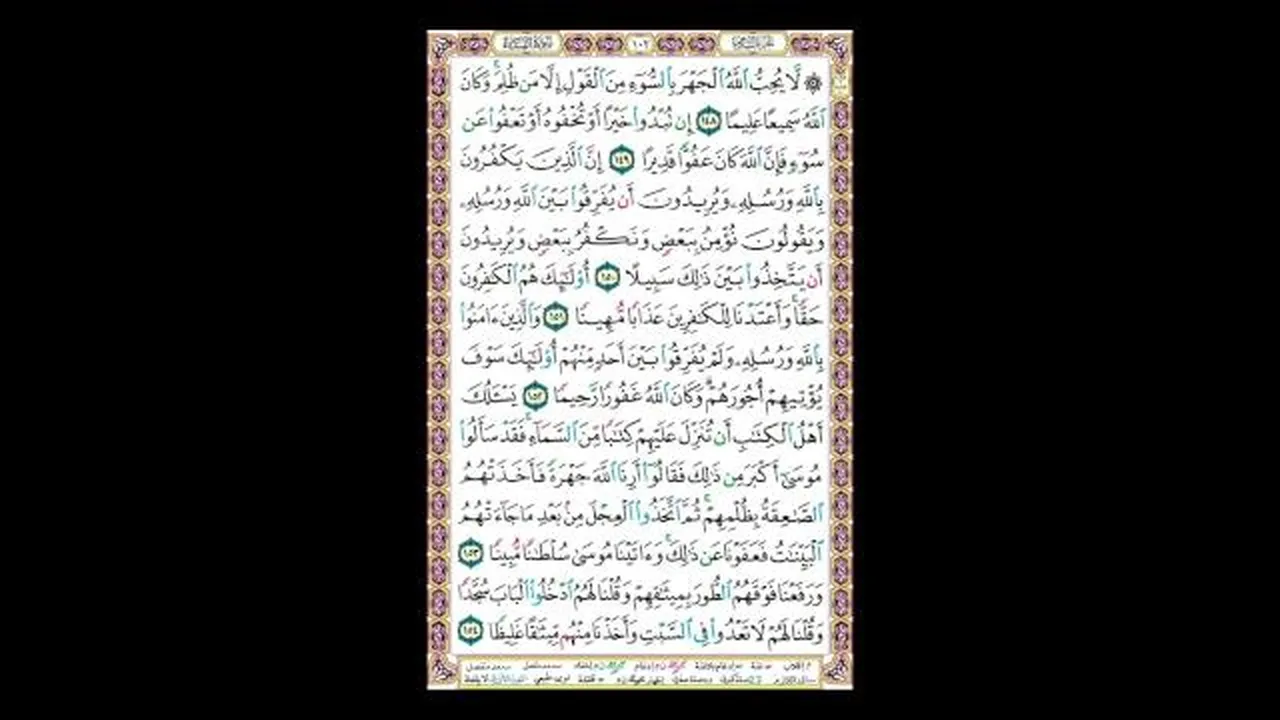 سورة النساء ١٠٢ الجزء السادس
۞ لَّا يُحِبُّ ٱللَّهُ ٱلْجَهْرَ بِٱلسُّوٓءِ مِنَ ٱلْقَوْلِ إِلَّا مَن ظُلِمَ ۚ وَكَانَ
ٱللَّهُ سَمِيعًا عَلِيمًا ١٤٨ إِن تُبْدُوا۟ خَيْرًا أَوْ تُخْفُوهُ أَوْ تَعْفُوا۟ عَن
سُوٓءٍ فَإِنَّ ٱللَّهَ كَانَ عَفُوًّا قَدِيرًا ١٤٩ إِنَّ ٱلَّذِينَ يَكْفُرُونَ
بِٱللَّهِ وَرُسُلِهِۦ وَيُرِيدُونَ أَن يُفَرِّقُوا۟ بَيْنَ ٱللَّهِ وَرُسُلِهِۦ
وَيَقُولُونَ نُؤْمِنُ بِبَعْضٍ وَنَكْفُرُ بِبَعْضٍ وَيُرِيدُونَ
أَن يَتَّخِذُوا۟ بَيْنَ ذَٰلِكَ سَبِيلًا ١٥٠ أُو۟لَٰٓئِكَ هُمُ ٱلْكَٰفِرُونَ
حَقًّا ۚ وَأَعْتَدْنَا لِلْكَٰفِرِينَ عَذَابًا مُّهِينًا ١٥١ وَٱلَّذِينَ ءَامَنُوا۟
بِٱللَّهِ وَرُسُلِهِۦ وَلَمْ يُفَرِّقُوا۟ بَيْنَ أَحَدٍ مِّنْهُمْ أُو۟لَٰٓئِكَ سَوْفَ
يُؤْتِيهِمْ أُجُورَهُمْ ۗ وَكَانَ ٱللَّهُ غَفُورًا رَّحِيمًا ١٥٢ يَسْـَٔلُكَ
أَهْلُ ٱلْكِتَٰبِ أَن تُنَزِّلَ عَلَيْهِمْ كِتَٰبًا مِّنَ ٱلسَّمَآءِ ۚ فَقَدْ سَأَلُوا۟
مُوسَىٰٓ أَكْبَرَ مِن ذَٰلِكَ فَقَالُوٓا۟ أَرِنَا ٱللَّهَ جَهْرَةً فَأَخَذَتْهُمُ
ٱلصَّٰعِقَةُ بِظُلْمِهِمْ ۚ ثُمَّ ٱتَّخَذُوا۟ ٱلْعِجْلَ مِنۢ بَعْدِ مَا جَآءَتْهُمُ
ٱلْبَيِّنَٰتُ فَعَفَوْنَا عَن ذَٰلِكَ ۚ وَءَاتَيْنَا مُوسَىٰ سُلْطَٰنًا مُّبِينًا ١٥٣
وَرَفَعْنَا فَوْقَهُمُ ٱلطُّورَ بِمِيثَٰقِهِمْ وَقُلْنَا لَهُمُ ٱدْخُلُوا۟ ٱلْبَابَ سُجَّدًا
وَقُلْنَا لَهُمْ لَا تَعْدُوا۟ فِى ٱلسَّبْتِ وَأَخَذْنَا مِنْهُم مِّيثَٰقًا غَلِيظًا ١٥٤